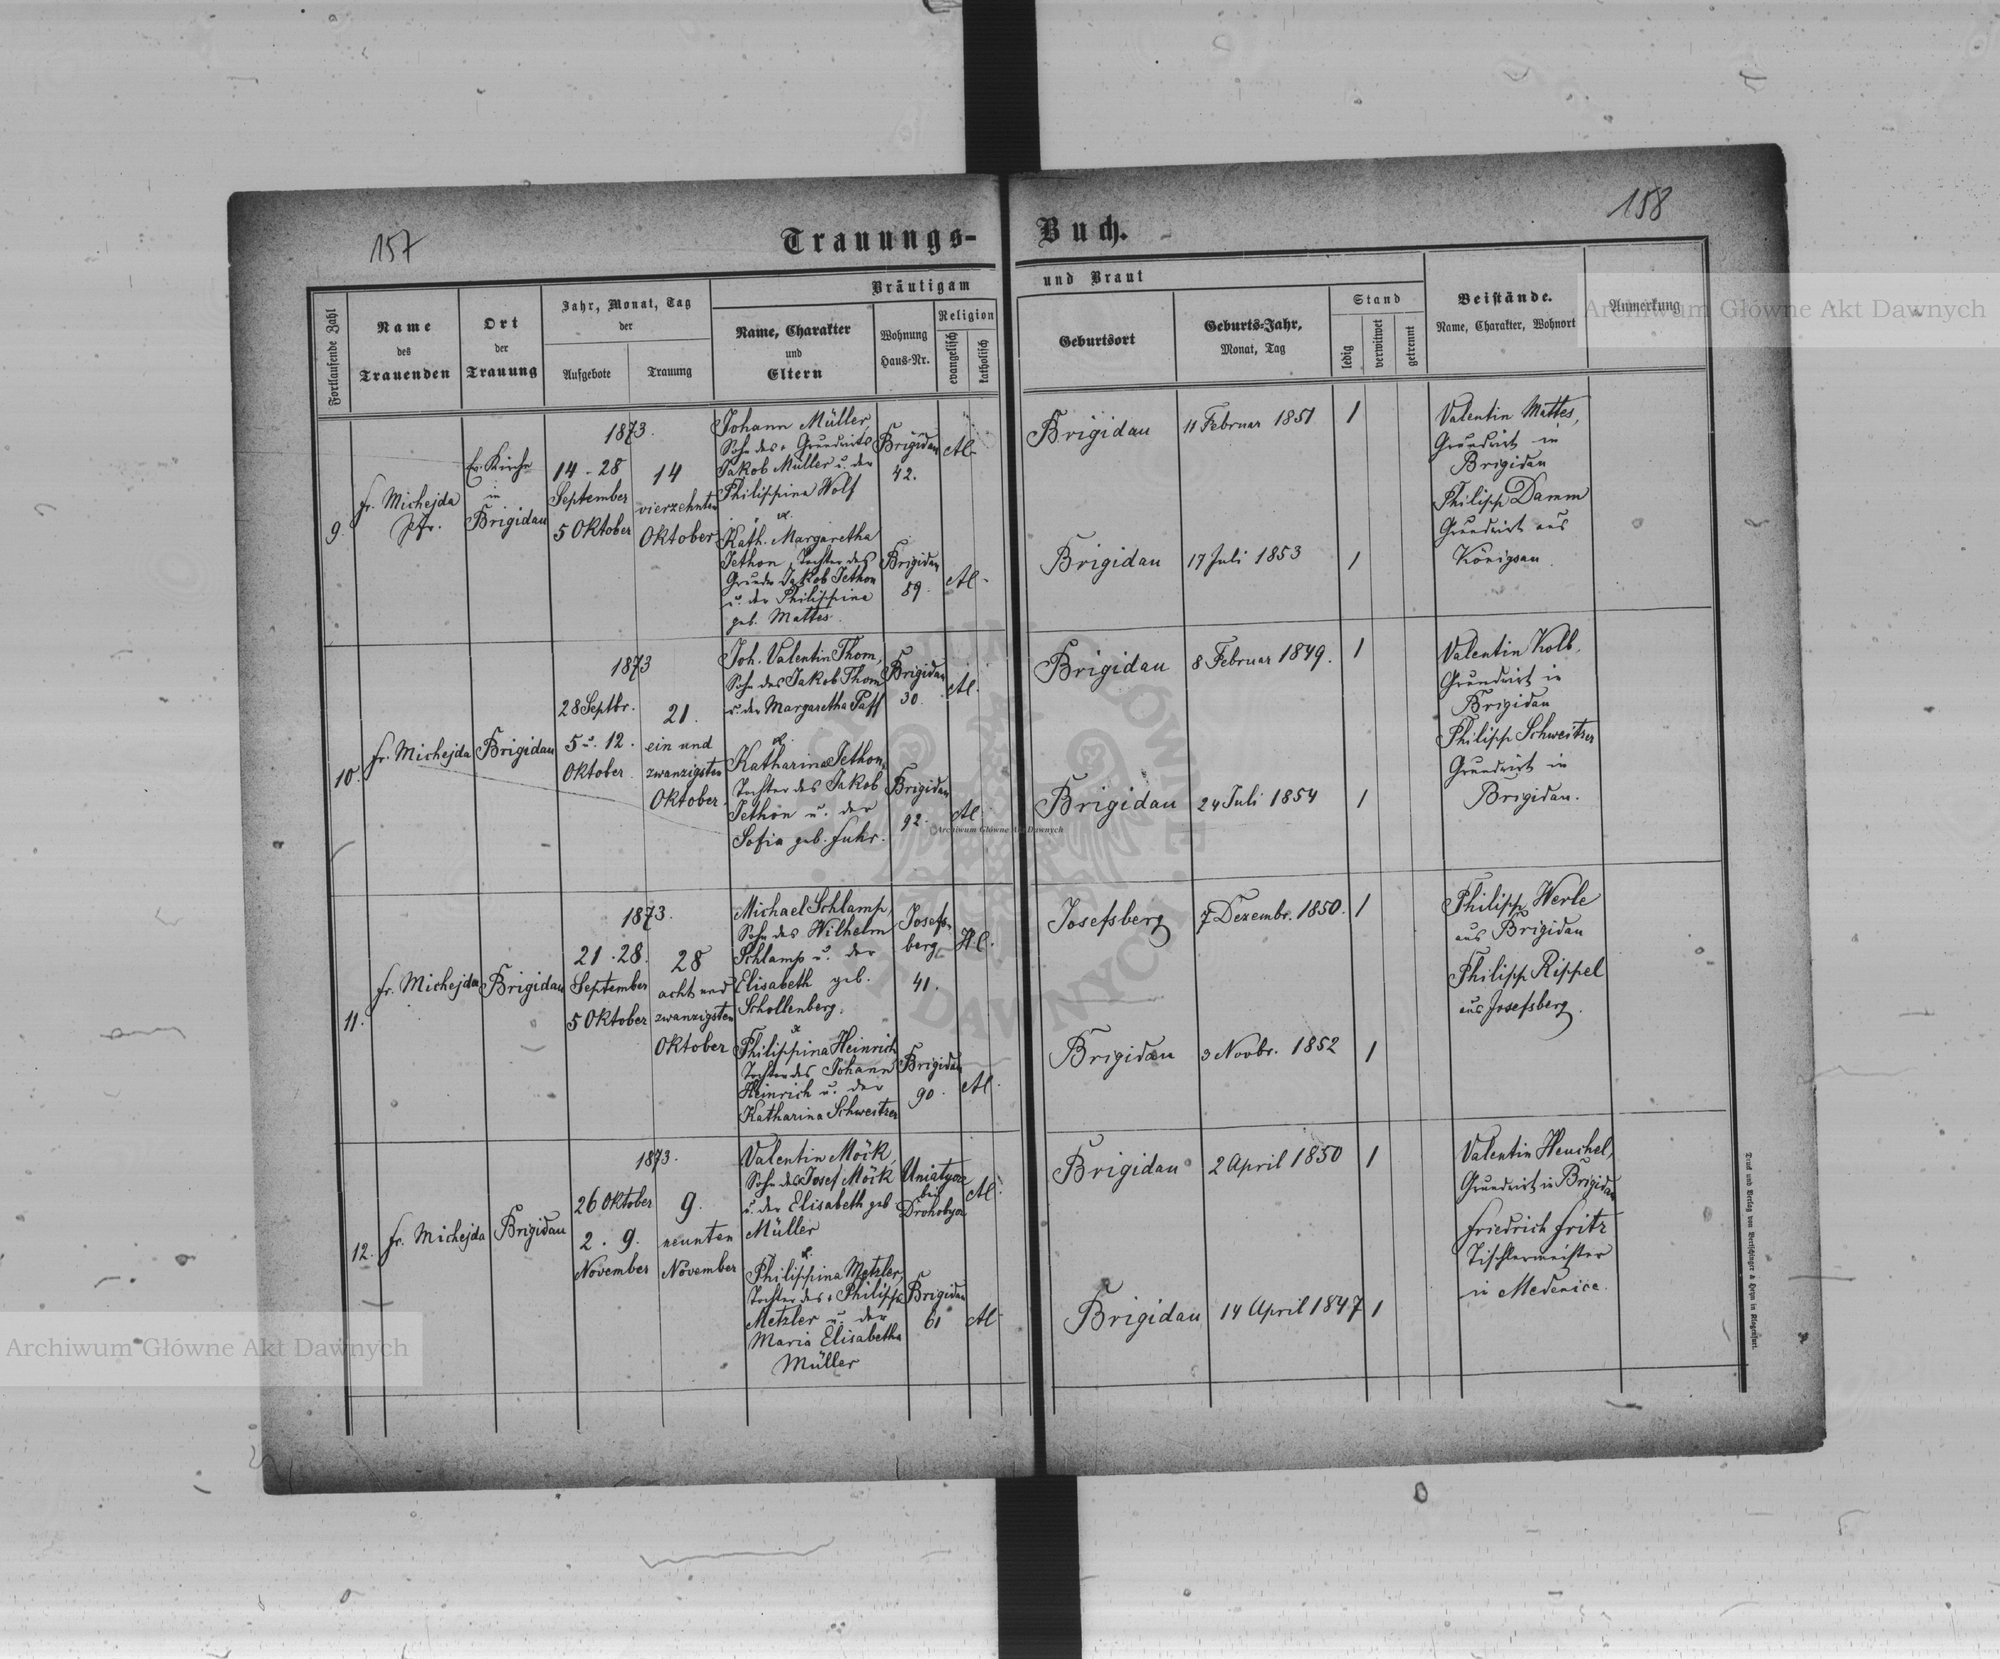 157
158
Trauungs-
Buch.
Fortlaufende Zahl
Name
des
Trauenden
Ort
der
Trauung
Jahr, Monat, Tag
der
Aufgebote
Trauung
Bräutigam
Name, Charakter
und
Eltern
Wohnung
Haus-Nr.
Religion
evangelisch
katholisch
und Braut
Geburtsort
Geburts-Jahr,
Monat, Tag
Stand
ledig
verwitwet
getrennt
Beistände.
Name, Charakter, Wohnort
Anmerkung
9.
fr. Michejda
Pfr.
Ev. Kirche
in
Brigidau
1873.
14 - 28
September
5 Oktober
14
vierzehnten
Oktober
Johann Müller,
Sohn des + Grundwirts
Jakob Müller u. der
Philippina Wolf
Brigidau
42.
A.C.
Brigidau
11 Februar 1851
1
Valentin Mattes,
Grundwirt in
Brigidau
Philipp Damm
Grundwirt aus
Königsau
u.
Kath. Margaretha
Jethon, Tochter des
Grundw Jakob Jethon
u. der Philippina
geb. Mattes.
Brigidau
89.
A.C.
Brigidau
17 Juli 1853
1
10.
fr. Michejda
Brigidau
1873
28 Septbr.
5 u. 12.
Oktober
21.
ein und
zwanzigsten
Oktober.
Joh. Valentin Thom,
Sohn des Jakob Thom
u. der Margaretha Paff
Brigidau
30.
A.C.
Brigidau
8 Februar 1849.
1
Valentin Kolb,
Grundwirt in
Brigidau
Philipp Schweitzer
Grundwirt in
Brigidau.
u.
Katharina Jethon,
Tochter des Jakob
Jethon u. der
Sofia geb. Fuhr.
Brigidau
92.
A.C.
Brigidau
24 Juli 1854
1
11.
fr. Michejda
Brigidau
1873.
21. 28.
September
5 Oktober
28
acht und
zwanzigsten
Oktober
Michael Schlamp,
Sohn des Wilhelm
Schlamp u. der
Elisabeth geb.
Schollenberg,
Josefs-
berg
41.
H.C.
Josefsberg
7 Dezembr. 1850.
1
Philipp Werle
aus Brigidau
Philipp Rippel
aus Josefsberg.
u.
Philippina Heinrich
Tochter des Johann
Heinrich u. der
Katharina Schweitzer
Brigidau
90.
A.C.
Brigidau
3 Novbr. 1852
1
12.
fr. Michejda
Brigidau
1873.
26 Oktober
2. 9.
November
9.
neunten
November
Valentin Möck,
Sohn des Josef Möck
u. der Elisabeth geb
Müller
Uniatycze
bei
Drohobycz
A.C.
Brigidau
2 April 1850
1
Valentin Heuchel,
Grundwirt in Brigidau
Friedrich Fritz
Tischlermeister
in Medenice.
u.
Philippina Metzler,
Tochter des + Philipp
Metzler u. der
Maria Elisabetha
Müller
Brigidau
61
A.C.
Brigidau
14 April 1847
1
Archiwum Główne Akt Dawnych
Archiwum Główne Akt Dawnych
Archiwum Główne Akt Dawnych